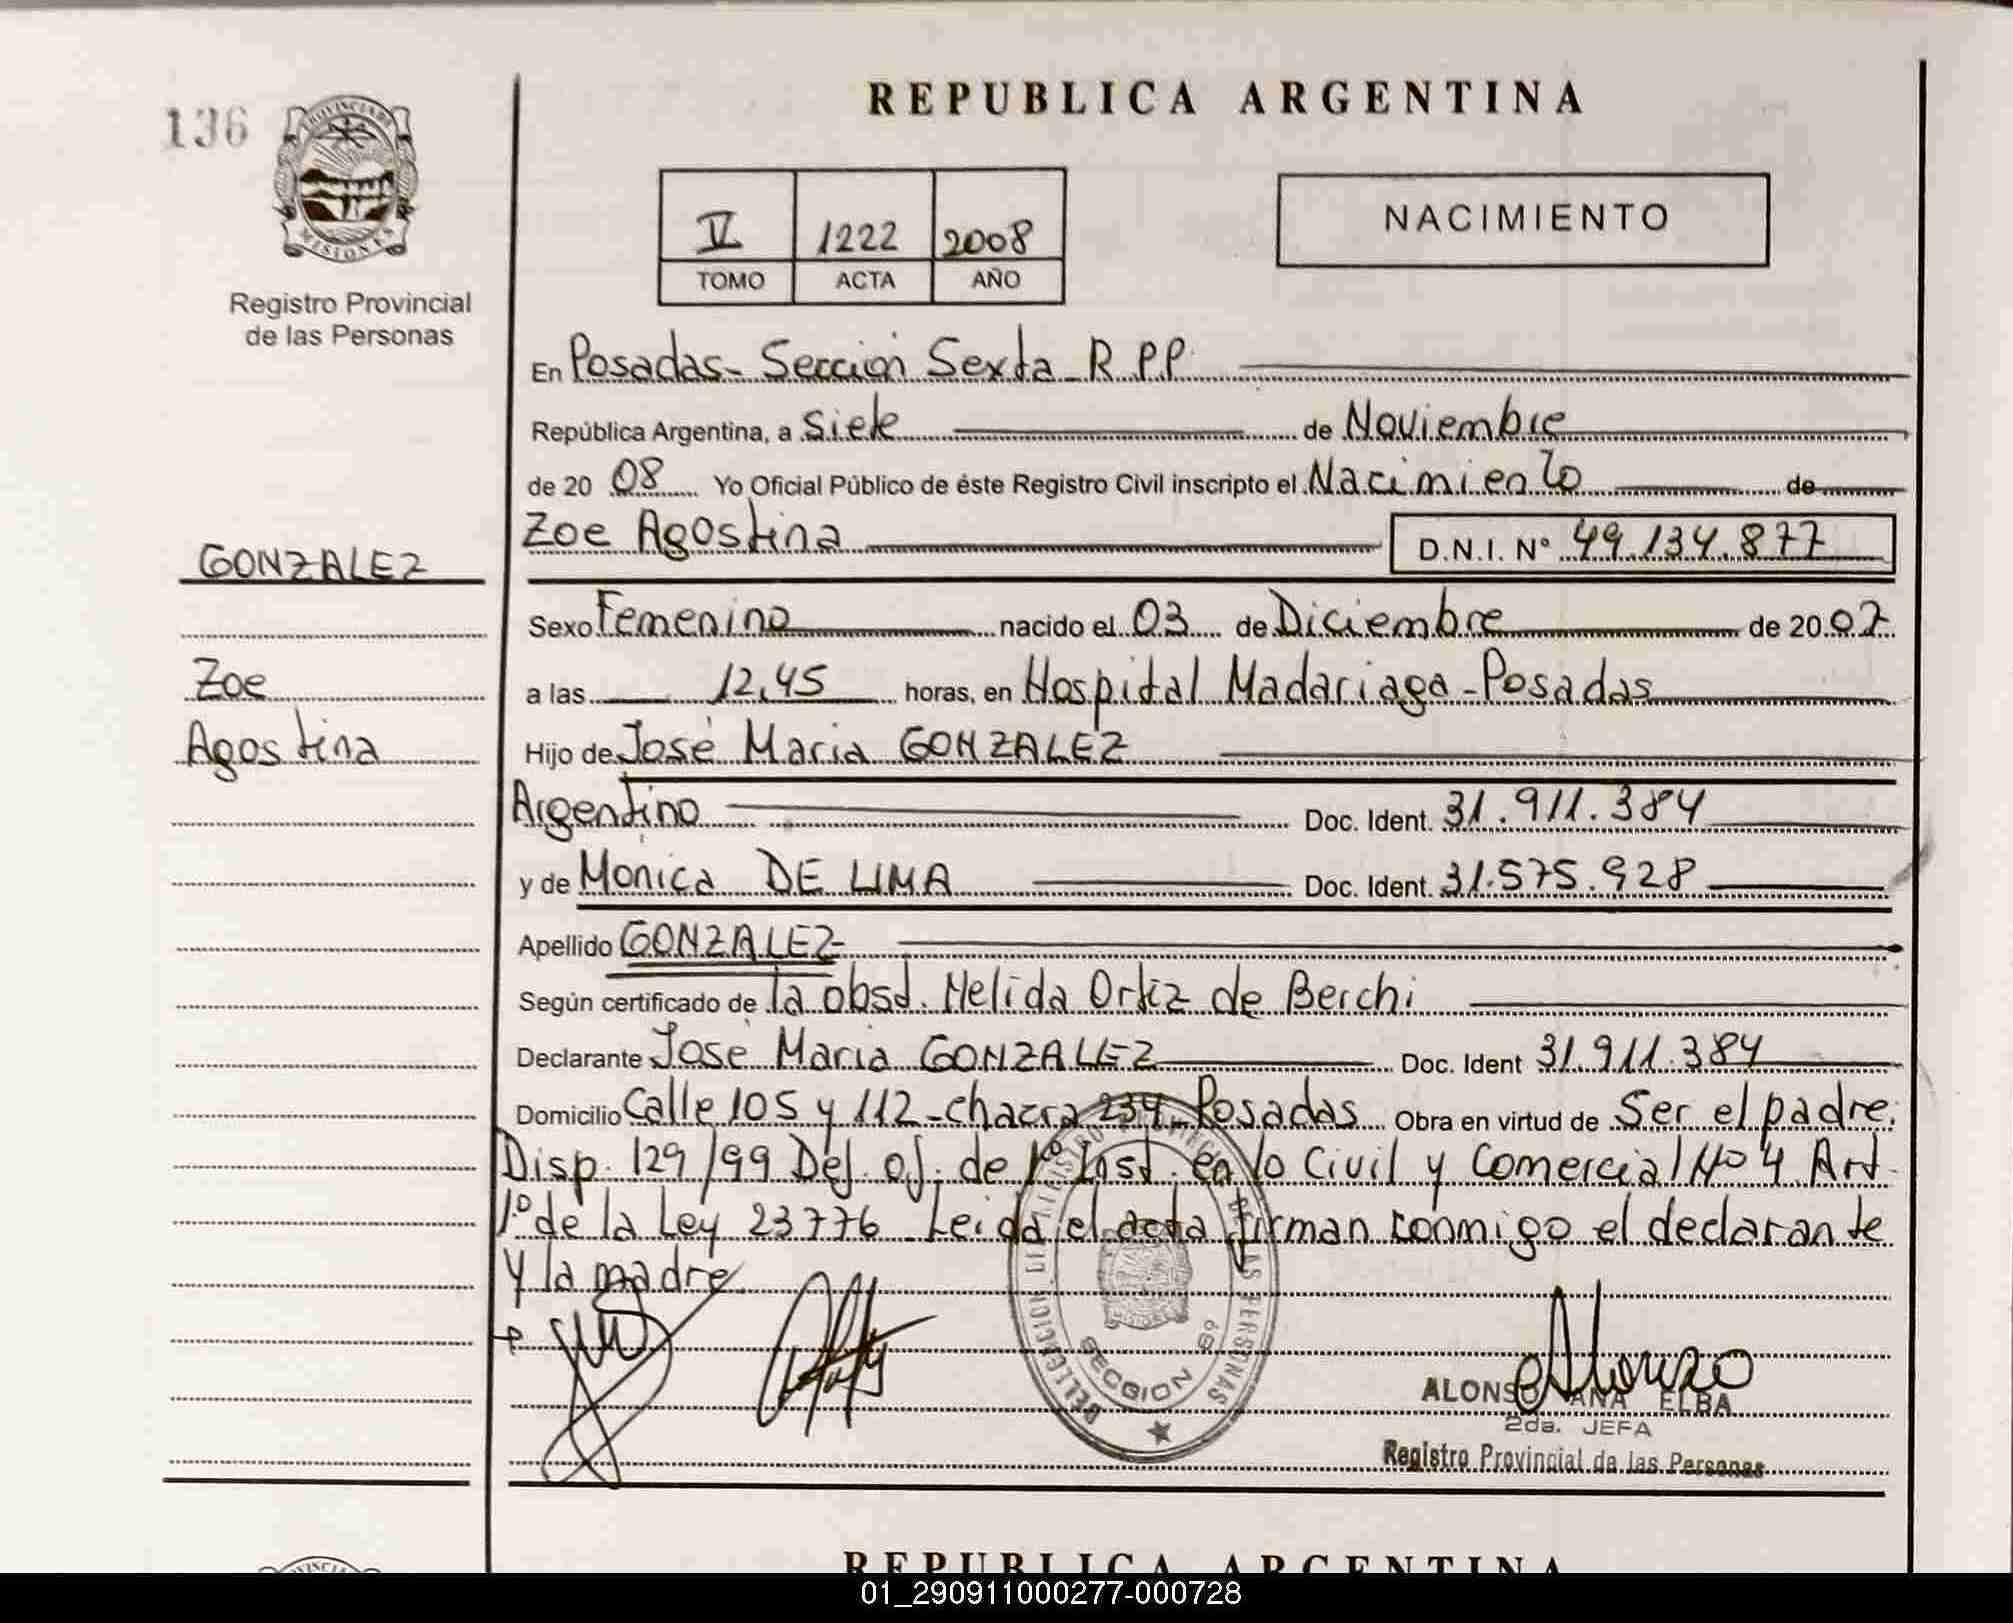 REPUBLICA ARGENTINA
136
PROVINCIA DE
MISIONES
Registro Provincial
de las Personas
V 1222 2008
TOMO ACTA AÑO
NACIMIENTO
En Posadas - Sección Sexta R.P.P.
República Argentina, a Siete de Noviembre
de 20 08 Yo Oficial Público de éste Registro Civil inscripto el Nacimiento de
Zoe Agostina D.N.I. Nº 49.134.877
GONZALEZ
Zoe
Agostina
Sexo Femenino nacido el 03 de Diciembre de 20 07
a las 12,45 horas, en Hospital Madariaga - Posadas
Hijo de José Maria GONZALEZ
Argentino Doc. Ident. 31.911.384
y de Monica DE LIMA Doc. Ident. 31.575.928
Apellido GONZALEZ
Según certificado de la obst. Nelida Ortiz de Berchi
Declarante José Maria GONZALEZ Doc. Ident 31.911.384
Domicilio Calle 105 y 112 - chacra 234 - Posadas Obra en virtud de Ser el padre.
Disp. 129/99 Def. of. de 1º Inst. en lo Civil y Comercial Nº 4 Art.
1º de la Ley 23776 Leida el acta firman conmigo el declarante
y la madre
SECCION 6º
Alonzo
ALONSO ANA ELBA
2da. JEFA
Registro Provincial de las Personas
REPUBLICA ARGENTINA
01_290911000277-000728